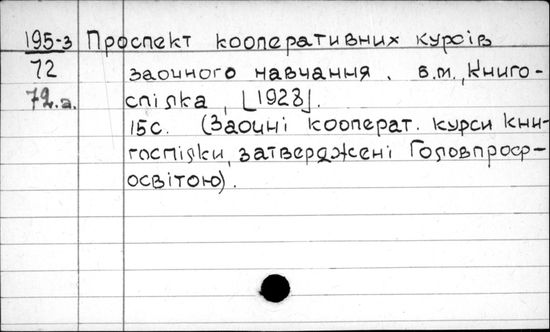 195-з Проспект кооперативних курсів
72 заочного навчання. в.м., Книго-
72.а. спілка, [1928].
15с. (Заочні кооперат. курси Кни-
госпілки, затверджені Головпроф-
освітою).